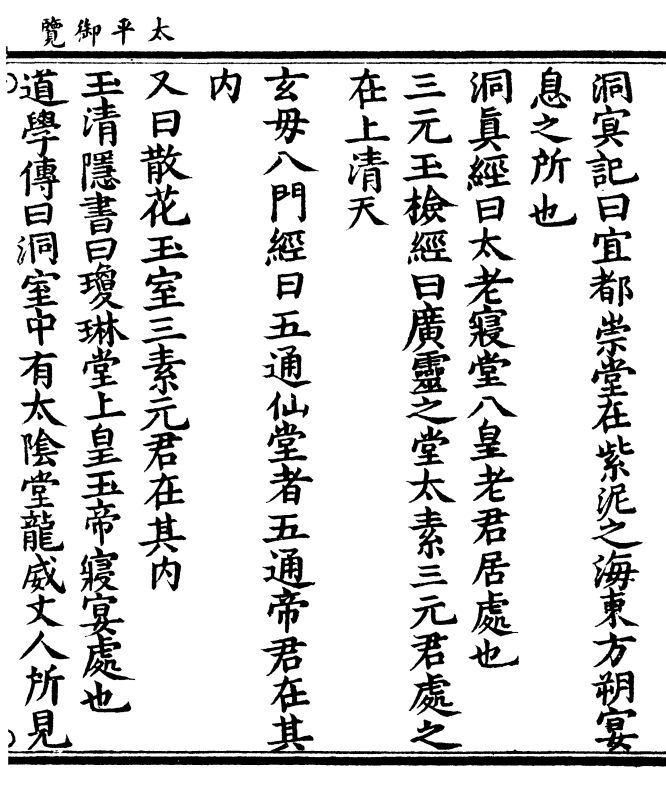 太平御覽
洞冥記曰宜都崇堂在紫泥之海東方朔宴
息之所也
洞真經曰太老寢堂八皇老君居處也
三元玉檢經曰廣靈之堂太素三元君處之
在上清天
玄毋八門經曰五通仙堂者五通帝君在其
内
又曰散花玉室三素元君在其内
玉清隱書曰瓊琳堂上皇玉帝寢宴處也
道學傳曰洞室中有太陰堂龍威丈人所見